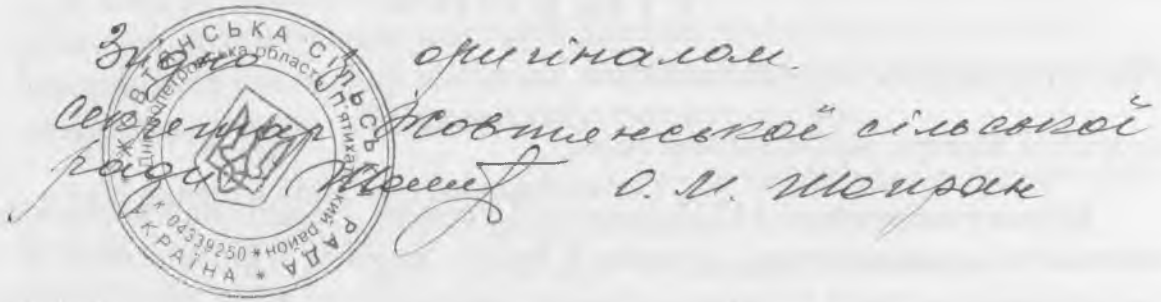 Згідно з оригіналом.
Секретар Жовтянської сільської
ради О. М.
ЖОВТЯНСЬКА СІЛЬСЬКА РАДА * УКРАЇНА *
Дніпропетровська область П'ятихатський район * к 04339250 *